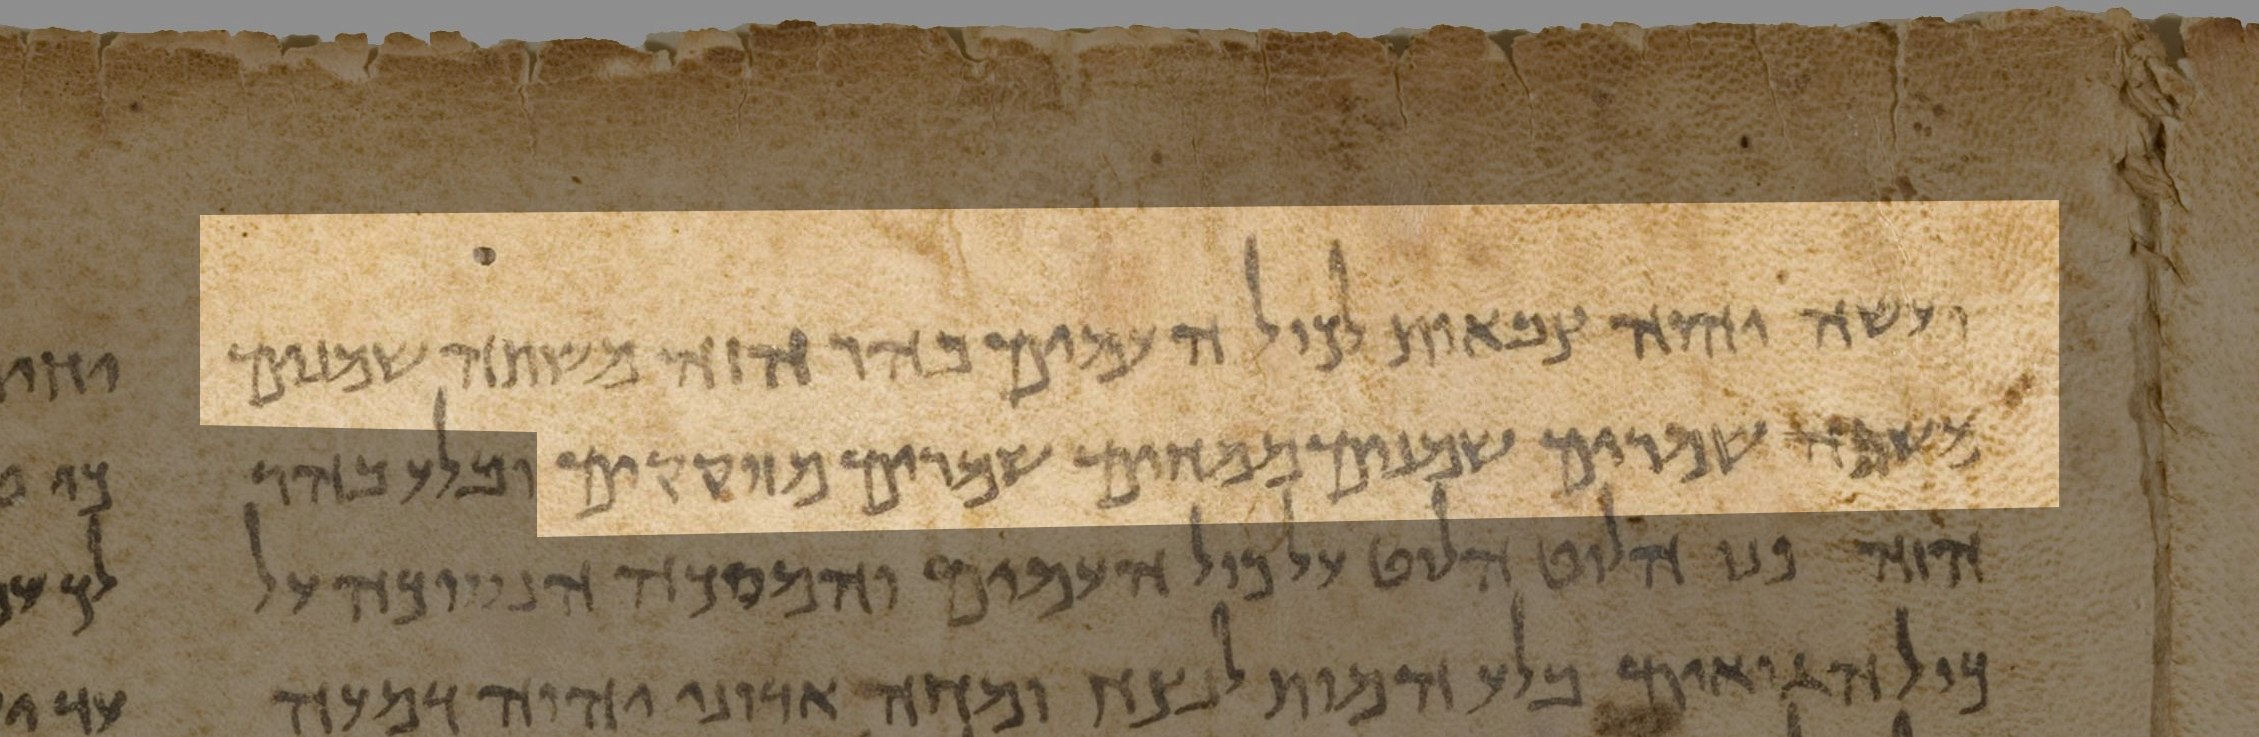 ועשה יהוה צבאות לכול העמים בהר הזה משתה שמנים
משתה שמרים שמנים ממחים שמרים מזוקקים ובלע בהר
הזה פני הלוט הלוט על כול העמים והמסכה הנסוכה על
כול הגואים בלע המות לנצח ומחה אדוני יהוה דמעה